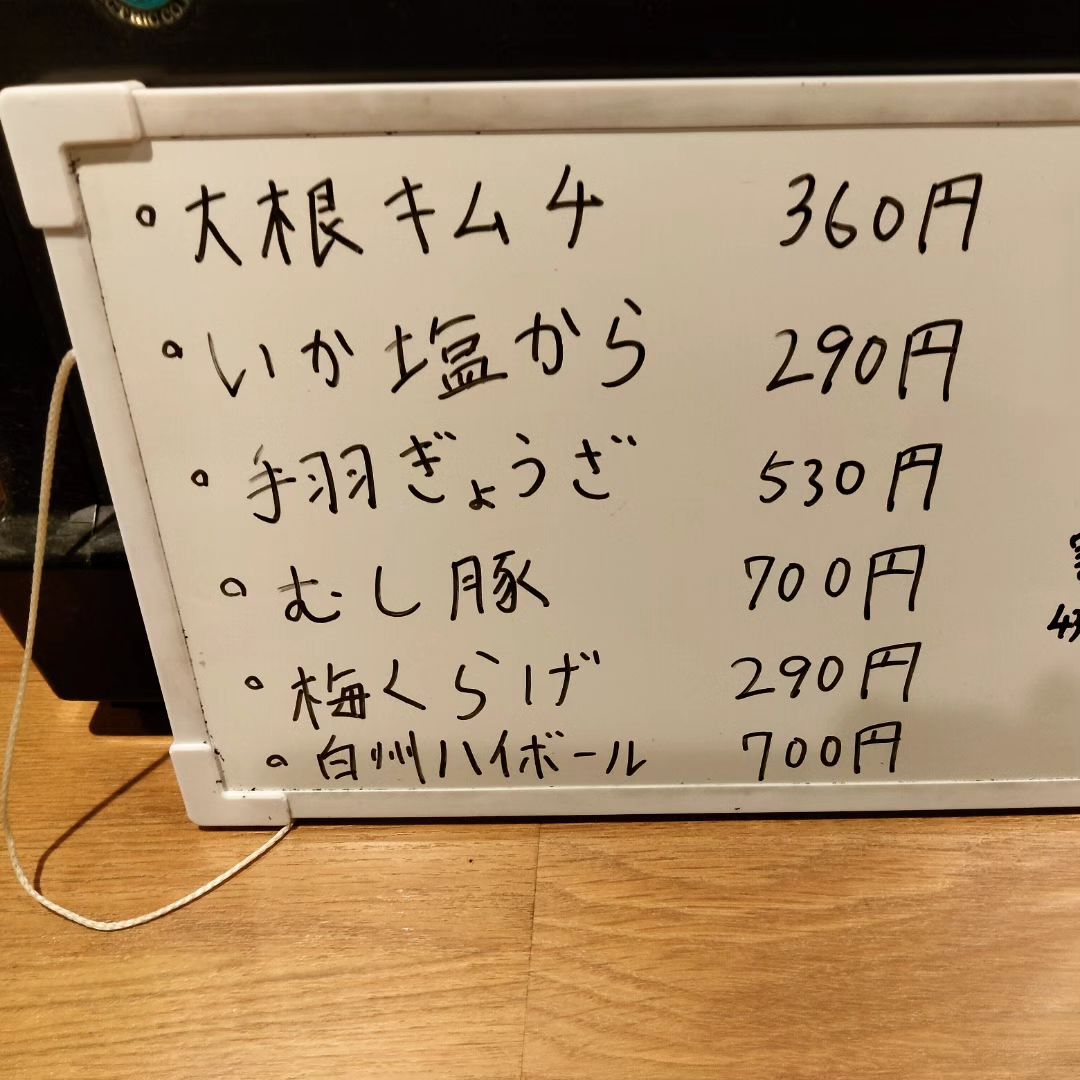 。大根キムチ 360円
。いか塩から 290円
。手羽ぎょうざ 530円
。むし豚 700円
。梅くらげ 290円
。白州ハイボール 700円